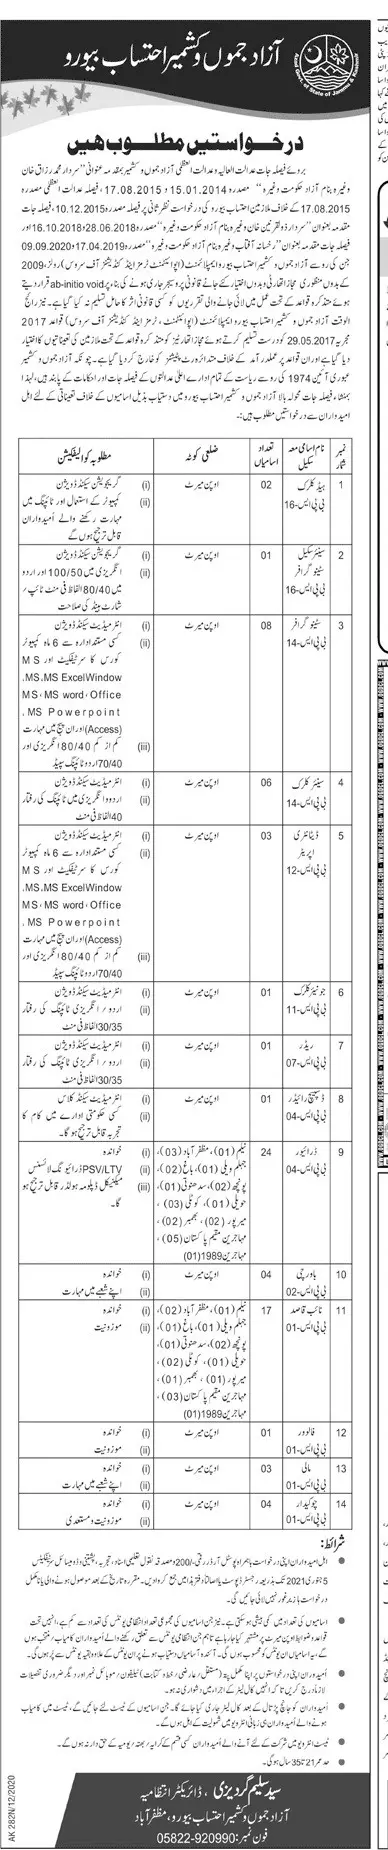 آزاد جموں و کشمیر احتساب بیورو
درخواستیں مطلوب ہیں
بروئے فیصلہ جات عدالت العالیہ و عدالت العظمٰی آزاد جموں و کشمیر بمقدمہ عنوانی "سردار محمد رزاق خان
وغیرہ بنام آزاد حکومت وغیرہ" مصدرہ 15.01.2014 و 17.08.2015، فیصلہ عدالت العظمٰی مصدرہ
17.08.2015 کے خلاف ملازمین احتساب بیورو کی درخواست نظر ثانی پر فیصلہ مصدرہ 10.12.2015، فیصلہ جات
مقدمہ بعنوان "سردار ذوالقرنین خان وغیرہ بنام آزاد حکومت وغیرہ" مصدرہ 28.06.2018 اور 16.10.2018،
فیصلہ جات مقدمہ بعنوان "رخسانہ آفتاب وغیرہ بنام احتساب بیورو وغیرہ" مصدرہ 17.04.2019 و 09.09.2020
جن کی رو سے آزاد جموں و کشمیر احتساب بیورو ایمپلائنٹ (اپوائنٹمنٹ ٹرمز اینڈ کنڈیشنز آف سروس) رولز، 2009
کے بدوں منظوری مجاز اتھارٹی و بدوں اختیار کئے جانے قانونی پروسیجر جاری ہونے کی بناء پر ab-initio void قرار دیتے
ہوئے متذکرہ قواعد کے تحت عمل میں لائی جانے والی تقرریوں کو کسی قانونی اثر کا حامل تسلیم نہ کیا گیا ہے۔ نیز رائج
الوقت آزاد جموں و کشمیر احتساب بیورو ایمپلائنٹ (اپوائنٹمنٹ، ٹرمز اینڈ کنڈیشنز آف سروس) قواعد 2017
مجریہ 29.05.2017 کو درست تسلیم کرتے ہوئے مجاز اتھارٹیز کو متذکرہ قواعد کے تحت عمل میں تعیناتیوں کا اختیار
دیا گیا ہے اور ان قواعد پر عملدرآمد کے خلاف متدائرہ رٹ پٹیشنز کو خارج کر دیا گیا ہے۔ چونکہ آزاد جموں و کشمیر
عبوری آئین 1974 کی رو سے ریاست کے تمام ادارے اعلیٰ عدالتوں کے فیصلہ جات اور احکامات کے پابند ہیں، لہٰذا
بمنشاء فیصلہ جات محولہ بالا آزاد جموں و کشمیر احتساب بیورو میں دستیاب بذیل اسامیوں کے خلاف تعیناتی کے لئے اہل
امیدواران سے درخواستیں مطلوب ہیں:
نمبر شمار نام اسامی معہ سکیل تعداد اسامیاں ضلعی کوٹہ مطلوبہ کوالیفکیشن
1 ہیڈ کلرک بی پی ایس-16 02 اوپن میرٹ (i) گریجویشن سیکنڈ ڈویژن
(ii) کمپیوٹر کے استعمال اور ٹائپنگ میں
مہارت رکھنے والے امیدواران
قابل ترجیح ہوں گے
2 سینئر سکیل سٹینوگرافر بی پی ایس-16 01 اوپن میرٹ (i) گریجویشن سیکنڈ ڈویژن
(ii) انگریزی میں 100/50 اور اردو
میں 80/40 الفاظ فی منٹ ٹائپ/
شارٹ ہینڈ کی صلاحیت
3 سٹینو گرافر بی پی ایس-14 08 اوپن میرٹ (i) انٹر میڈیٹ سیکنڈ ڈویژن
(ii) کسی مستند ادارہ سے 6 ماہ کمپیوٹر
کورس کا سرٹیفکیٹ اور MS
،MS،MS ExcelWindow
MS، MS word، Office
، MS Powerpoint
(Access) اور ان پیج میں مہارت
(iii) کم از کم 80/40 انگریزی اور
70/40 اردو ٹائپنگ سپیڈ
4 سینئر کلرک بی پی ایس-14 06 اوپن میرٹ (i) انٹر میڈیٹ سیکنڈ ڈویژن
(ii) اردو و انگریزی میں ٹائپنگ کی رفتار
40 الفاظ فی منٹ
5 ڈیٹا انٹری آپریٹر بی پی ایس-12 03 اوپن میرٹ (i) انٹر میڈیٹ سیکنڈ ڈویژن
(ii) کسی مستند ادارہ سے 6 ماہ کمپیوٹر
کورس کا سرٹیفکیٹ اور MS
،MS،MS ExcelWindow
MS، MS word، Office
، MS Powerpoint
(Access) اور ان پیج میں مہارت
(iii) کم از کم 80/40 انگریزی اور
70/40 اردو ٹائپنگ سپیڈ
6 جونیئر کلرک بی پی ایس-11 01 اوپن میرٹ (i) انٹر میڈیٹ سیکنڈ ڈویژن
(ii) اردو/ انگریزی ٹائپنگ کی رفتار
30/35 الفاظ فی منٹ
7 ریڈر بی پی ایس-07 01 اوپن میرٹ (i) انٹر میڈیٹ سیکنڈ ڈویژن
(ii) اردو/ انگریزی ٹائپنگ کی رفتار
30/35 الفاظ فی منٹ
8 ڈسپیچ رائیڈر بی پی ایس-04 01 اوپن میرٹ (i) انٹر میڈیٹ سیکنڈ کلاس
(ii) کسی حکومتی ادارے میں کام کا
تجربہ قابل ترجیح ہو گا۔
9 ڈرائیور بی پی ایس-04 24 نیلم (01)، مظفرآباد (03)،
جہلم ویلی (01)، باغ (02)،
پونچھ (02)، سدھنوتی (01)،
حویلی (01)، کوٹلی (03)،
میرپور (02)، بھمبر (02)،
مہاجرین مقیم پاکستان (05)،
مہاجرین 1989 (01)
(i) خواندہ
(ii) PSV/LTV ڈرائیونگ لائسنس
(iii) مکینیکل ڈپلومہ ہولڈر قابل ترجیح ہو
گا۔
10 باورچی بی پی ایس-02 04 اوپن میرٹ (i) خواندہ
(ii) اپنے شعبے میں مہارت
11 نائب قاصد بی پی ایس-01 17 نیلم (01)، مظفرآباد (02)،
جہلم ویلی (01)، باغ (01)،
پونچھ (02)، سدھنوتی (01)،
حویلی (01)، کوٹلی (02)،
میرپور (01)، بھمبر (01)،
مہاجرین مقیم پاکستان (03)،
مہاجرین 1989 (01)
(i) خواندہ
(ii) موزونیت
12 فالوور بی پی ایس-01 01 اوپن میرٹ (i) خواندہ
(ii) موزونیت
13 مالی بی پی ایس-01 03 اوپن میرٹ (i) خواندہ
(ii) اپنے شعبے میں مہارت
14 چوکیدار بی پی ایس-01 04 اوپن میرٹ (i) خواندہ
(ii) موزونیت و مستعدی
شرائط:
اہل امیدواران اپنی درخواست ہمراہ پوسٹل آرڈر رقمی -/200 و مصدقہ نقول تعلیمی اسناد، تجربہ، پشتینی و ڈومیسائل سرٹیفکیٹس
5 جنوری 2021 تک بذریعہ رجسٹرڈ پوسٹ یا اصالتاً دفتر ہذا میں جمع کروا دیں۔ مقررہ تاریخ کے بعد موصول ہونے والی یا نامکمل
درخواست ہا زیر غور نہیں لائی جائیں گی۔
اسامیوں کی تعداد میں کمی بیشی ہو سکتی ہے۔
امیدواران اپنی درخواستوں پر اپنا مکمل پتہ (مستقل/ عارضی/ خط و کتابت) ٹیلیفون/ موبائل نمبر اور دیگر ضروری تفصیلات
لازماً درج کریں تاکہ انہیں کال لیٹر کے اجراء میں دشواری نہ ہو۔
امیدواران کو جانچ پڑتال کے بعد کال لیٹر جاری کیا جائے گا۔ جن اسامیوں کے لئے ٹیسٹ لئے جائیں گے، ٹیسٹ میں کامیاب
ہونے والے امیدواران ہی زبانی انٹرویو میں شمولیت کے اہل ہوں گے۔
ٹیسٹ انٹرویو میں شرکت کے لئے آنے والے امیدواران کسی قسم کے کرایہ/ بھتہ/ یومیہ کے حق دار نہ ہوں گے۔
حد عمر 21 تا 35 سال ہو گی۔
سید سلیم گردیزی، ڈائریکٹر انتظامیہ
آزاد جموں و کشمیر احتساب بیورو، مظفرآباد
فون نمبر: 05822-920990
AK 282N/12/2020